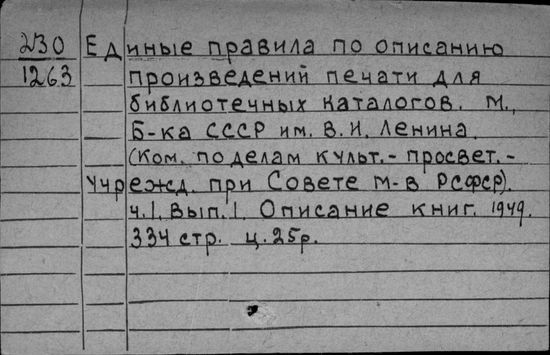 230 Единые правила по описанию
1263 произведений печати для
библиотечных каталогов. М.,
Б-ка СССР им. В. И. Ленина.
(Ком. по делам культ.-просвет.-
учрежд. при Совете м-в РСФСР).
ч.1. Вып.1. Описание книг. 1949.
334 стр. ц. 25р.